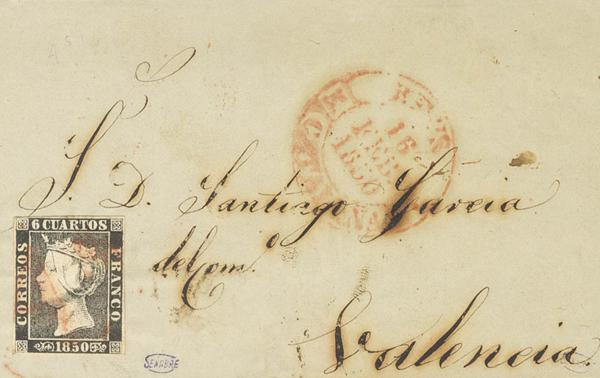 REUS
16
FEB
1850
S. D. Santiago Garcia
del Com.º
Valencia.
6 CUARTOS
CORREOS
FRANCO
1850
SENABRE